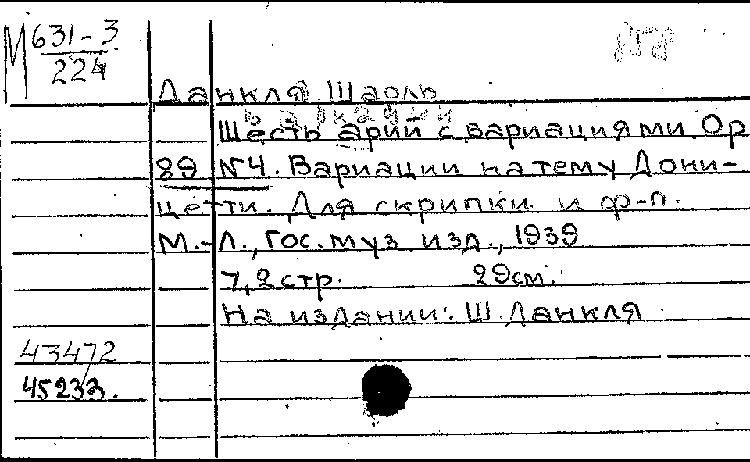 М 631-3
224
Данкля Шарль
Шесть арий с вариациями. Ор.
89 №4. Вариации на тему Дони-
цетти. Для скрипки и ф-п.
М.-Л., Гос. муз. изд., 1939
7,2 стр. 29см.
На издании: Ш. Данкля
43472
45233.